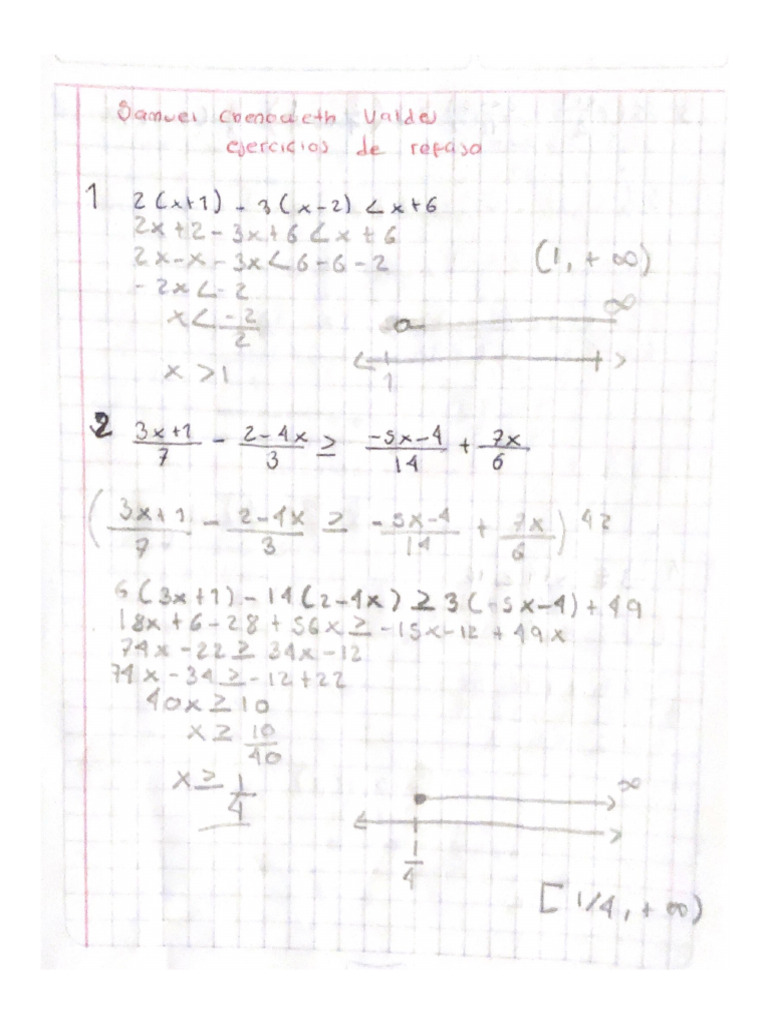 Samuel Valdes
ejercicios de repaso
1 2(x+1) - 3(x-2) < x+6
2x+2-3x+6 < x+6
2x-x-3x < 6-6-2
(1, +∞)
-2x < -2
x < -2/2
∞
x > 1
1
2 3x+1/7 - 2-4x/3 ≥ -5x-4/14 + 7x/6
(3x+1/7 - 2-4x/3 ≥ -5x-4/14 + 7x/6) 42
6(3x+1) - 14(2-4x) ≥ 3(-5x-4) + 49
18x+6-28+56x ≥ -15x-12+49x
74x-22 ≥ 34x-12
74x-34 ≥ -12+22
40x ≥ 10
x ≥ 10/40
x ≥ 1/4
∞
1/4
[1/4, +∞)